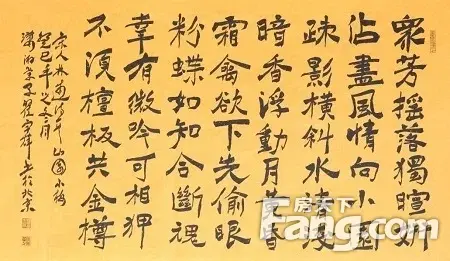 眾芳搖落獨暄妍
佔盡風情向小園
疎影橫斜水清淺
暗香浮動月黄昏
霜禽欲下先偷眼
粉蝶如知合斷魂
幸有微吟可相狎
不須檀板共金樽
宋人林逋詩 山園小梅
癸巳年之月
於北京
房天下
Fang.com